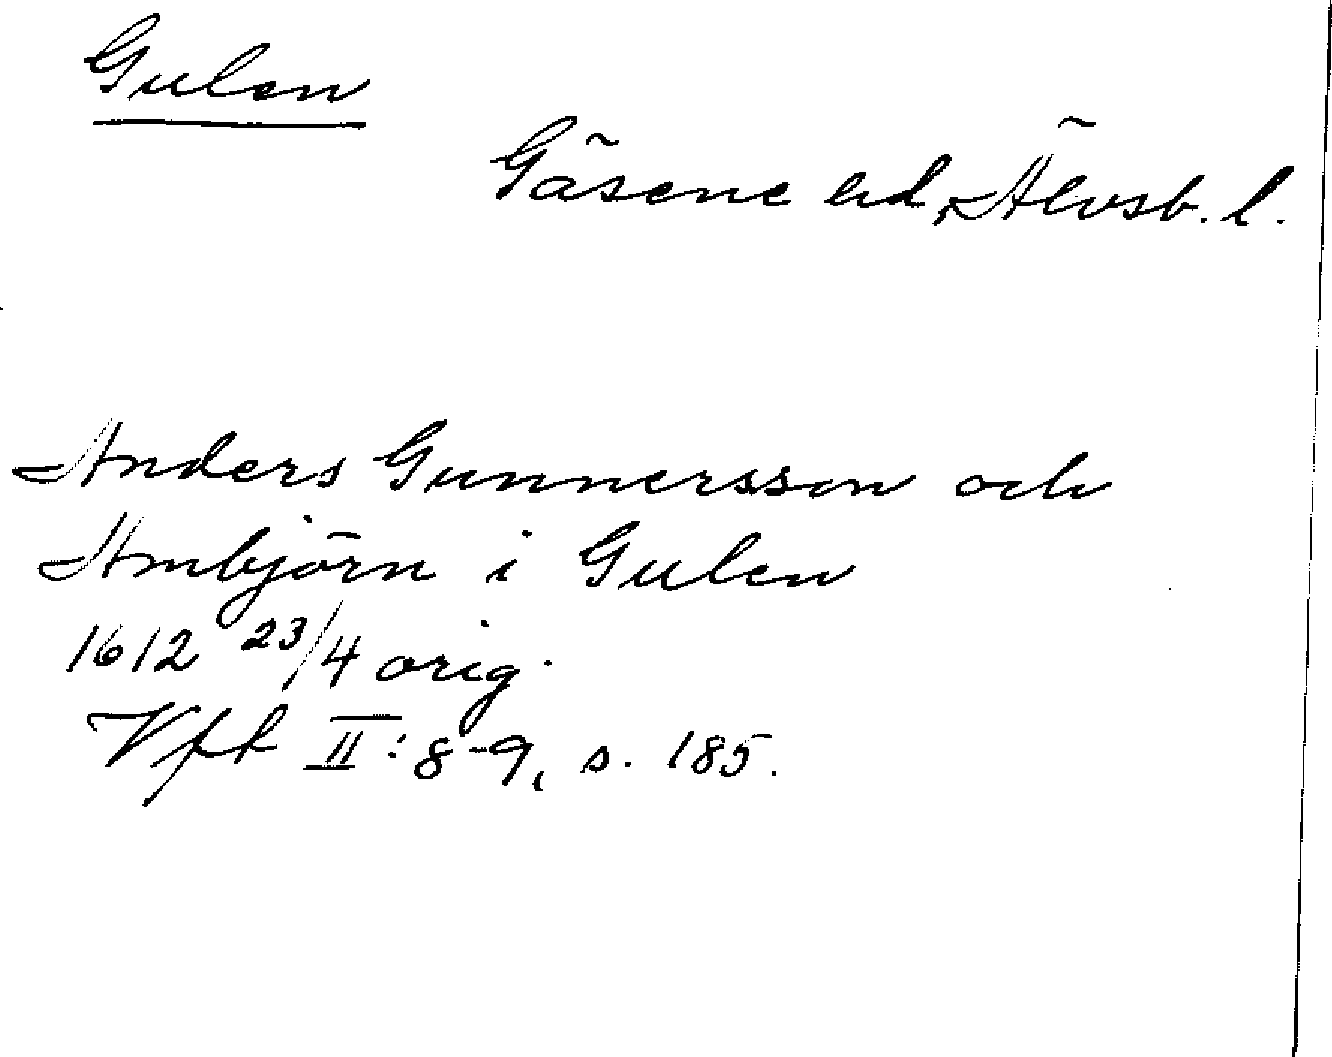 Gulen
Gäsene hd, Älvsb. l.
Anders Gunnersson och
Ambjörn i Gulen
1612 23/4 orig.
Vfk II: 8-9, s. 185.